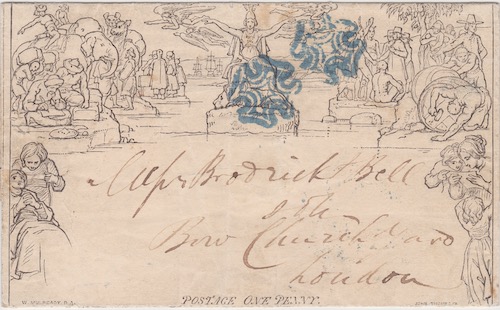 Brodrick & Bell
Bow Church Yard
London
W. MULREADY. R.A.
POSTAGE ONE PENNY.
JOHN THOMPSON